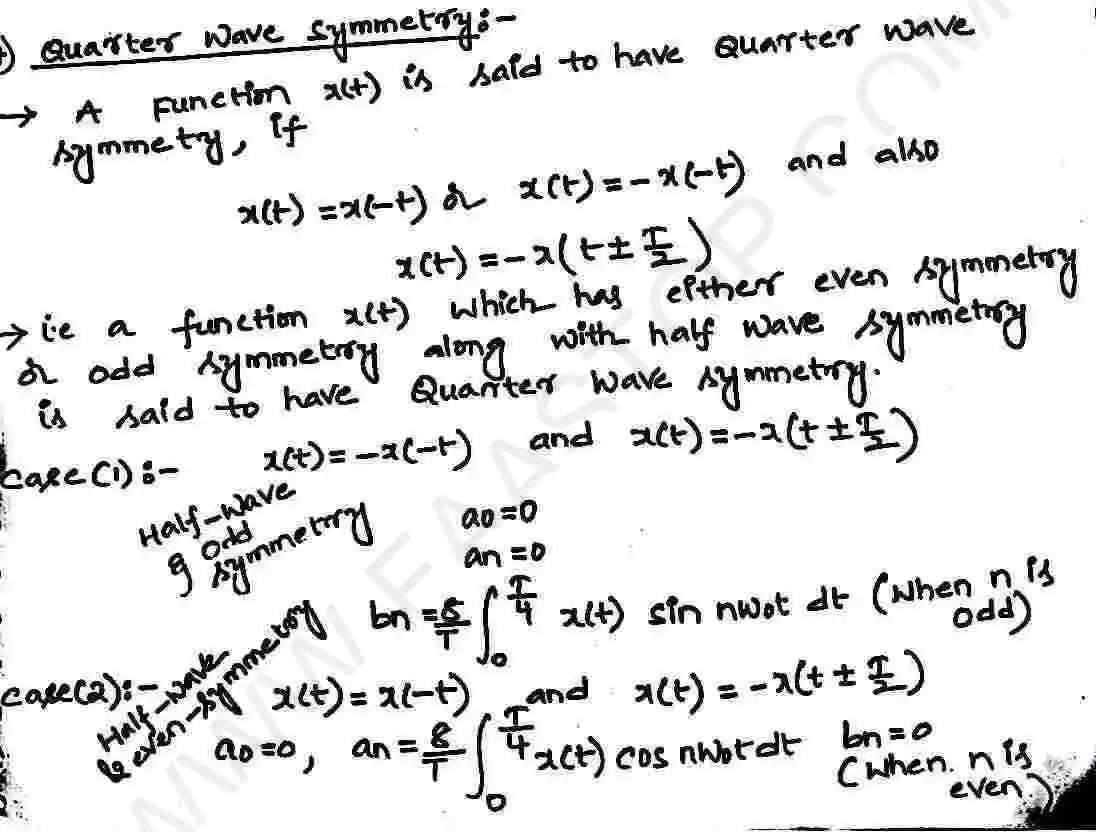 Quarter wave symmetry:-
→ A function x(t) is said to have Quarter wave
symmetry, if
x(t) = x(-t) or x(t) = -x(-t) and also
x(t) = -x(t ± T/2)
→ i.e a function x(t) which has either even symmetry
or odd symmetry along with half wave symmetry
is said to have Quarter wave symmetry.
case(1):- x(t) = -x(-t) and x(t) = -x(t ± T/2)
Half-wave
& odd
symmetry
a0 = 0
an = 0
bn = 8/T ∫₀^T/4 x(t) sin nω0t dt (when n is
odd)
case(2):- x(t) = x(-t) and x(t) = -x(t ± T/2)
Half-wave
& even-symmetry
a0 = 0, an = 8/T ∫₀^T/4 x(t) cos nω0t dt bn = 0
(when. n is
even)
WWW.FAASTOP.COM